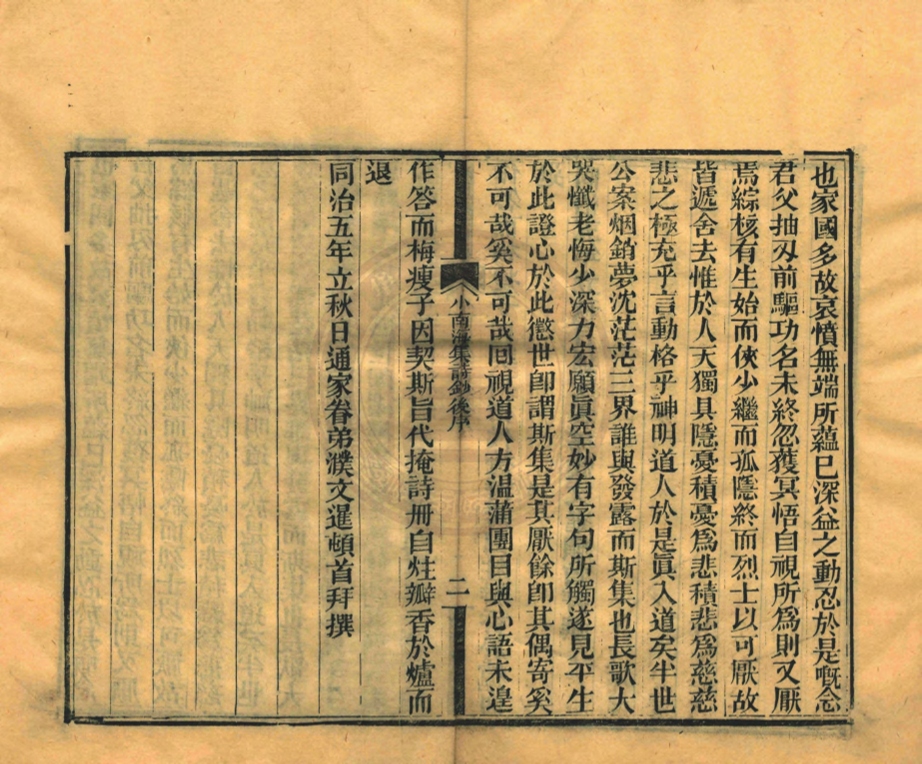 也家國多故哀憤無端所蘊已深益之動忍於是嘅念
君父抽刃前驅功名未終忽獲冥悟自視所爲則又厭
焉綜核有生始而俠少繼而孤隱終而烈士以可厭故
皆遞舍去惟於人天獨具隱憂積憂爲悲積悲爲慈慈
悲之極充乎言動格乎神明道人於是眞入道矣半世
公案烟銷夢沈茫茫三界誰與發露而斯集也長歌大
哭懺老悔少深力宏願眞空妙有字句所觸遂見平生
於此證心於此懲世卽謂斯集是其厭餘卽其偶寄奚
不可哉奚不可哉囘視道人方溫蒲團目與心語未遑
小南海集詩鈔後序
二
作答而梅瘦子因契斯旨代掩詩冊自炷瓣香於爐而
退
同治五年立秋日通家眷弟濮文暹頓首拜撰